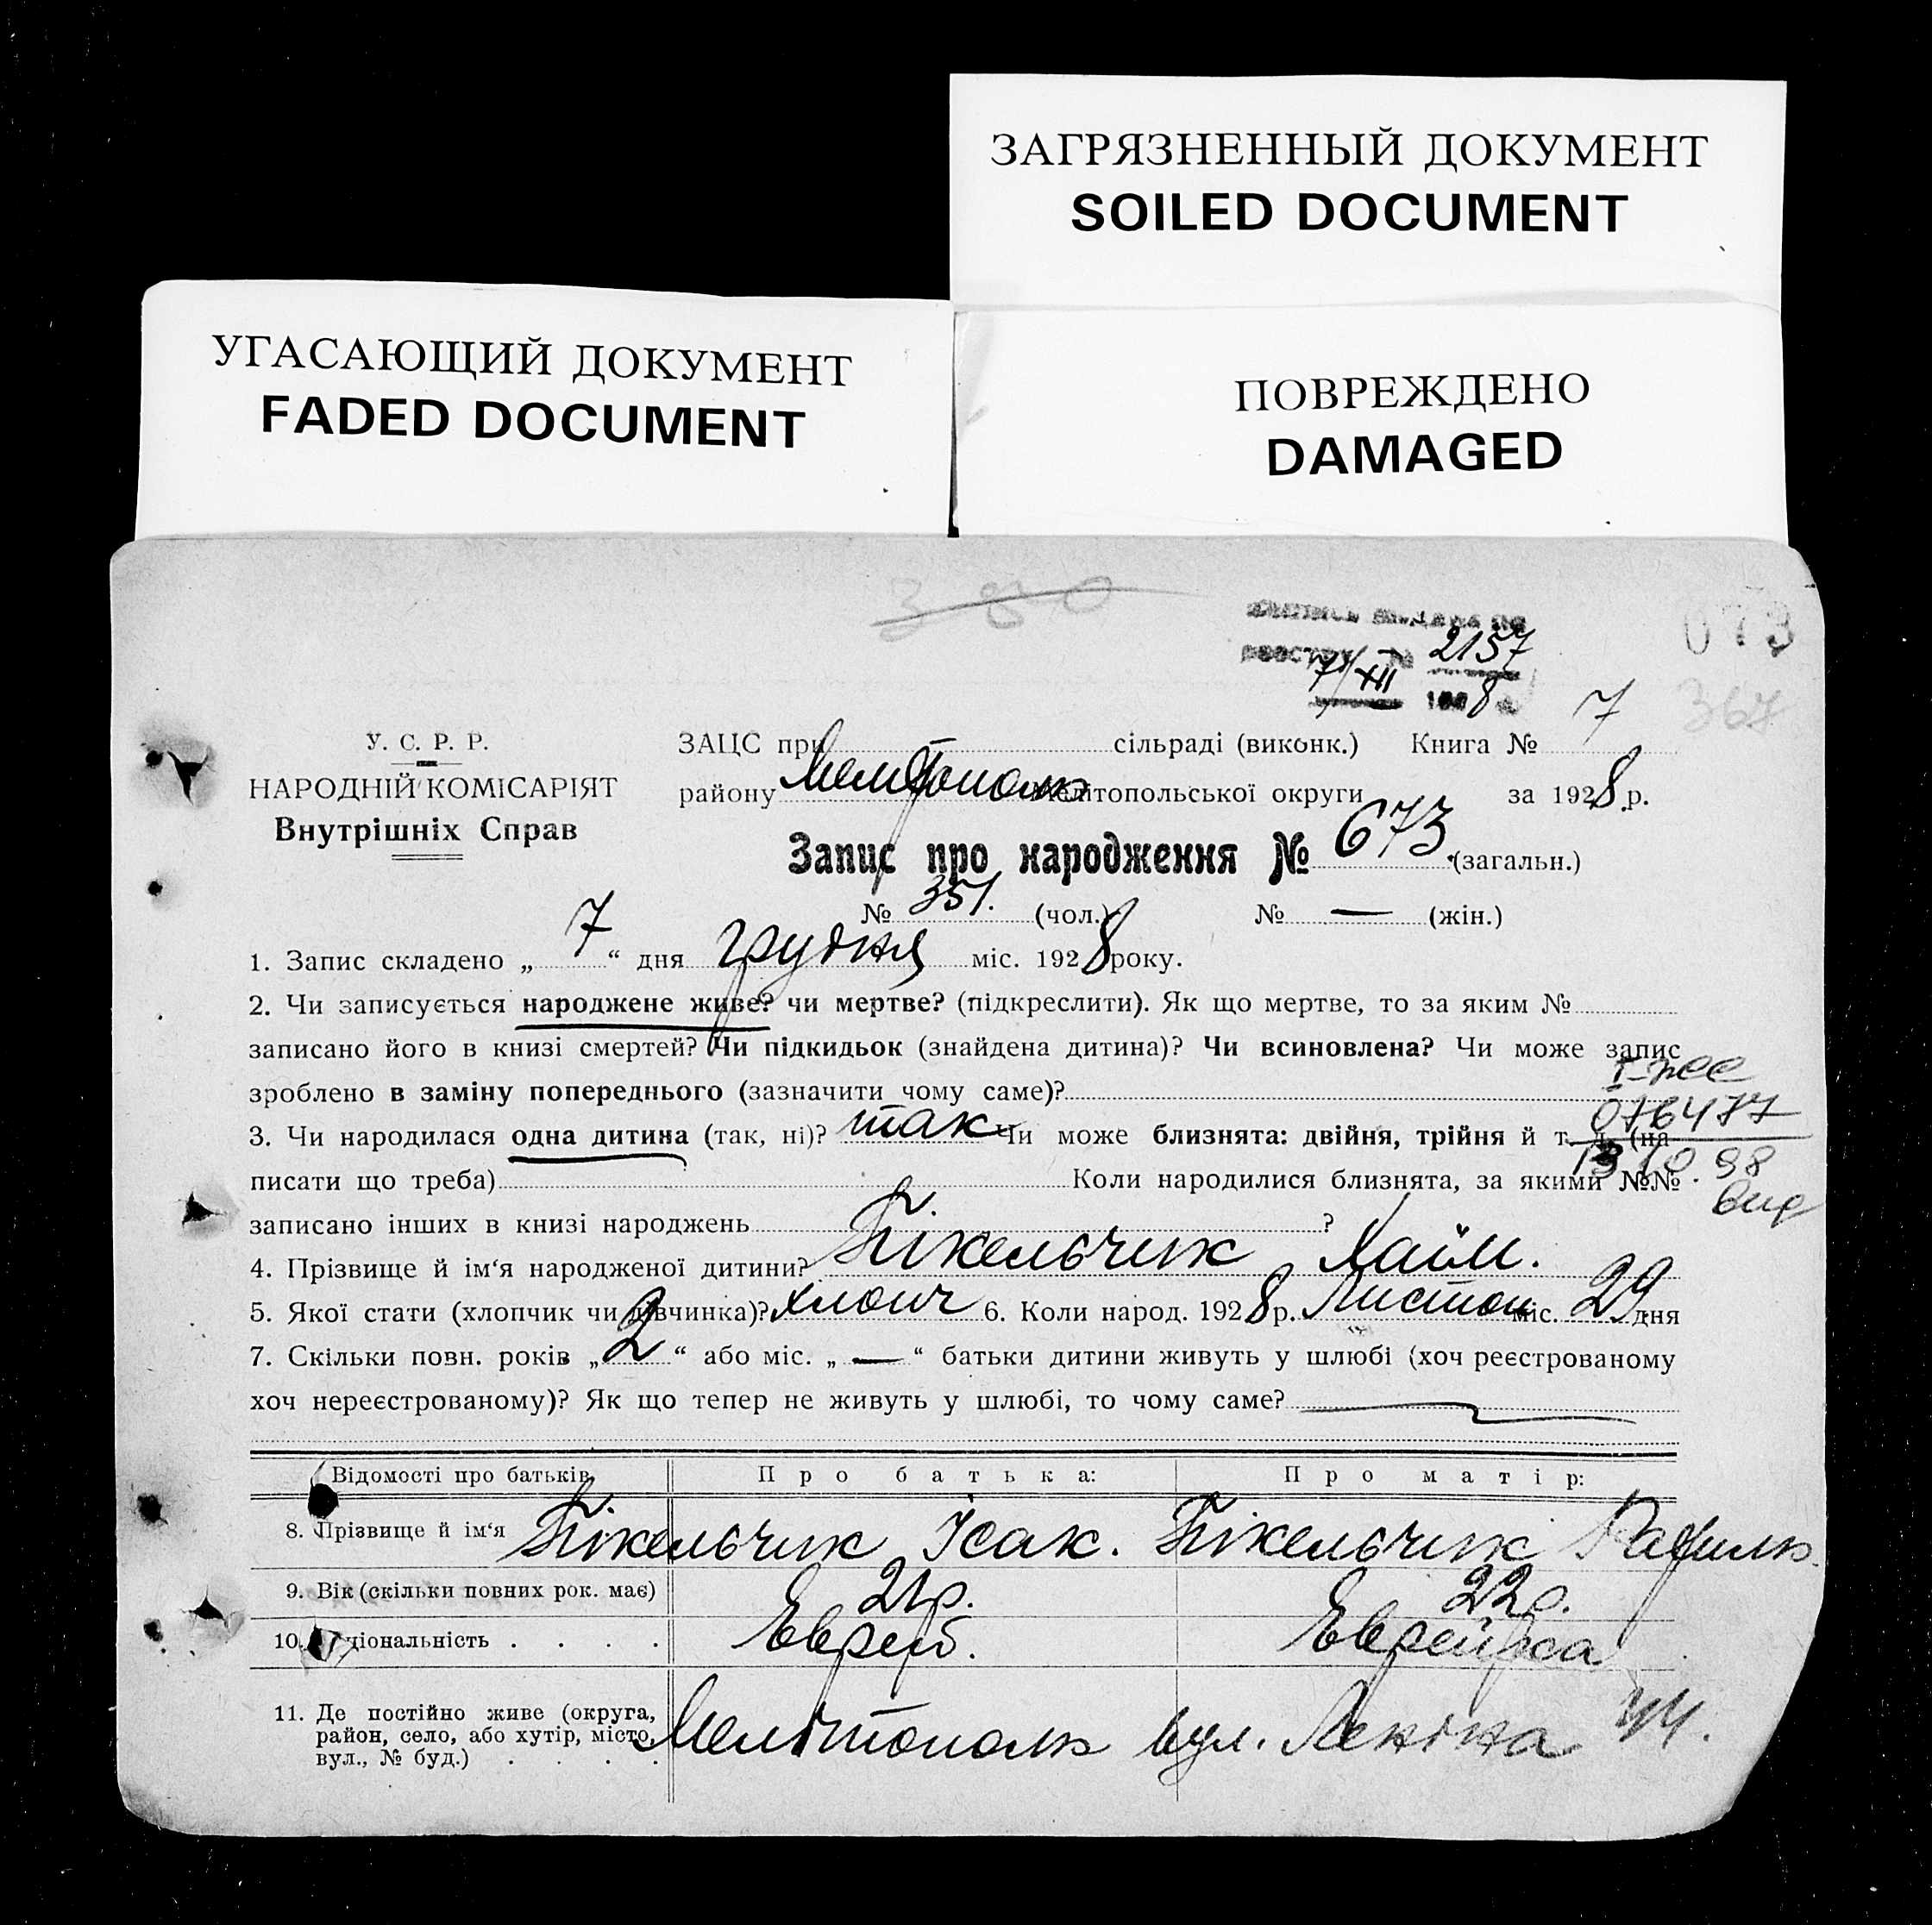 ЗАГРЯЗНЕННЫЙ ДОКУМЕНТ
SOILED DOCUMENT
УГАСАЮЩИЙ ДОКУМЕНТ
FADED DOCUMENT
ПОВРЕЖДЕНО
DAMAGED
380
073
2157
7/XII 1928
367
У. С. Р. Р.
НАРОДНІЙ КОМІСАРІЯТ
Внутрішніх Справ
ЗАЦС при — сільраді (виконк.) Книга № 7
району Мелітополь Мелітопольської округи за 1928 р.
Запис про народження № 673. (загальн.)
№ 351. (чол.) № — (жін.)
1. Запис складено „ 7 “ дня грудня міс. 1928 року.
2. Чи записується народжене живе? чи мертве? (підкреслити). Як що мертве, то за яким №
записано його в книзі смертей? Чи підкидьок (знайдена дитина)? Чи всиновлена? Чи може запис
зроблено в заміну попереднього (зазначити чому саме)?
076477
13 10 98
3. Чи народилася одна дитина (так, ні)? так Чи може близнята: двійня, трійня й т. д. (на
писати що треба) Коли народилися близнята, за якими №№
записано інших в книзі народжень ?
4. Прізвище й ім‘я народженої дитини? Бікельчик Хайм.
5. Якої стати (хлопчик чи дівчинка)? хлопч 6. Коли народ. 1928 р. Листоп міс. 29 дня
7. Скільки повн. років „ 2 “ або міс. „ — “ батьки дитини живуть у шлюбі (хоч реєстрованому
хоч нереєстрованому)? Як що тепер не живуть у шлюбі, то чому саме?
Відомості про батьків Про батька: Про матір:
8. Прізвище й ім‘я Бікельчик Ісак. Бікельчик Рахиль.
9. Вік (скільки повних рок. має) 21 р. 22 р.
10. Національність . . . . Еврей. Еврейка
11. Де постійно живе (округа,
район, село, або хутір, місто,
вул., № буд.) . . . . Мелітополь вул. Леніна 44.